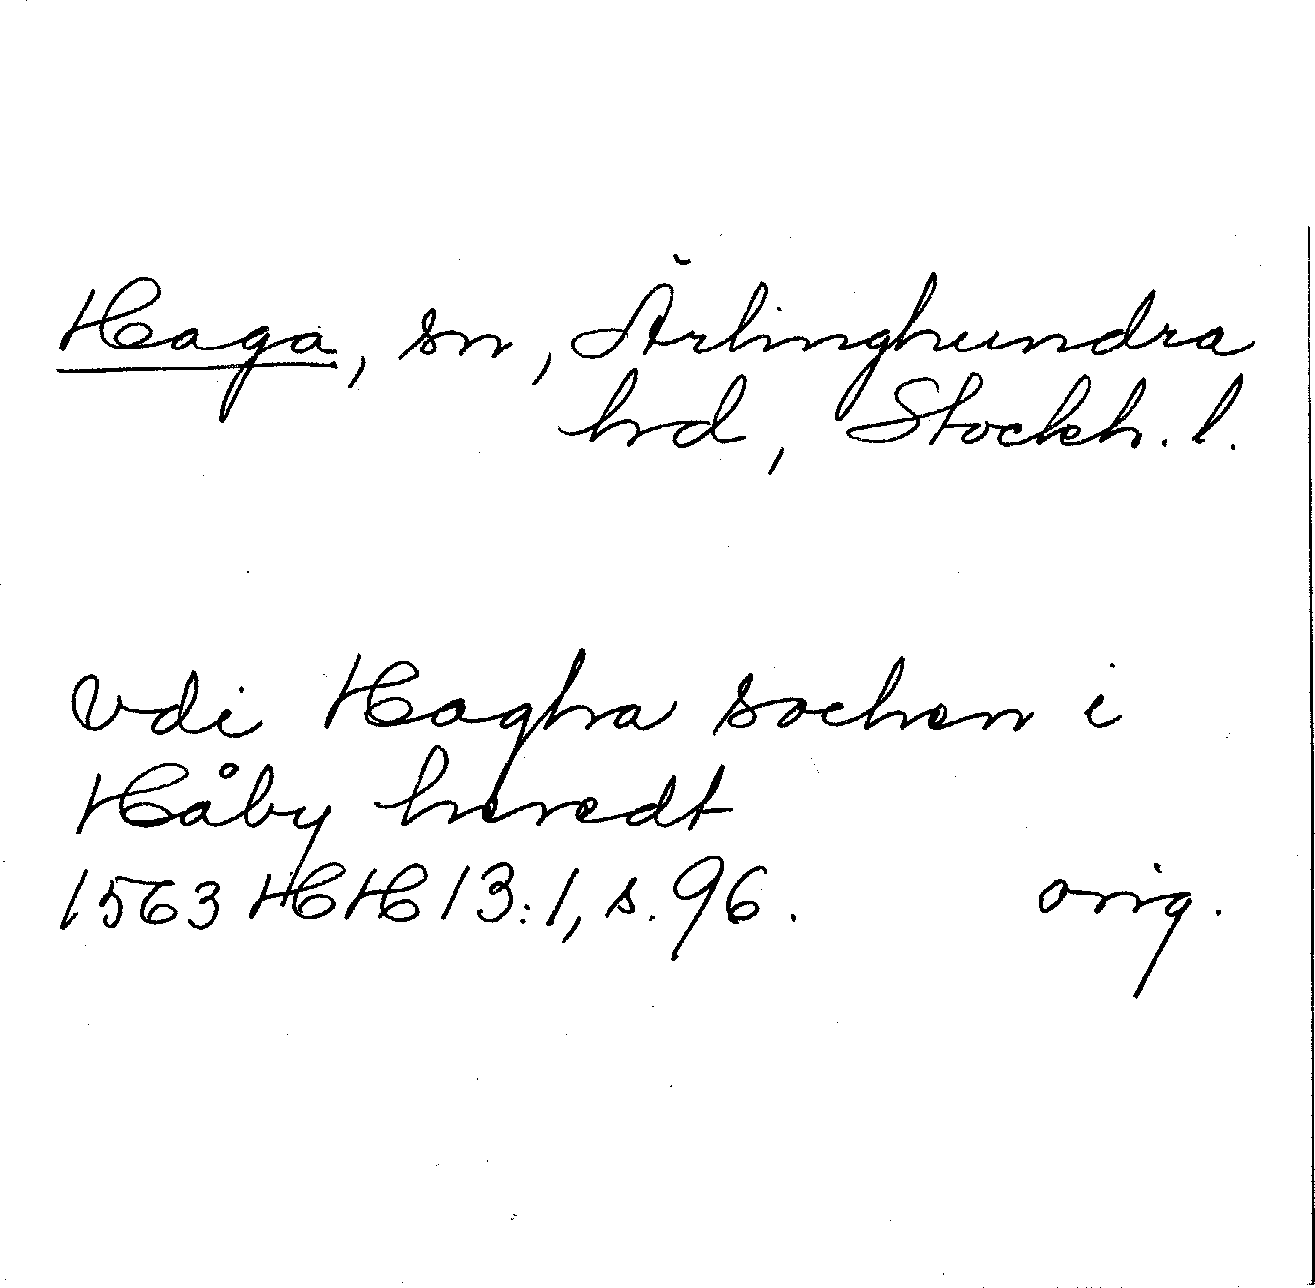 Haga, sn, Ärlinghundra
hd, Stockh. l.
vdi Hagha sochen i
Håby heredt
1563 HH 13:1, s. 96. orig.